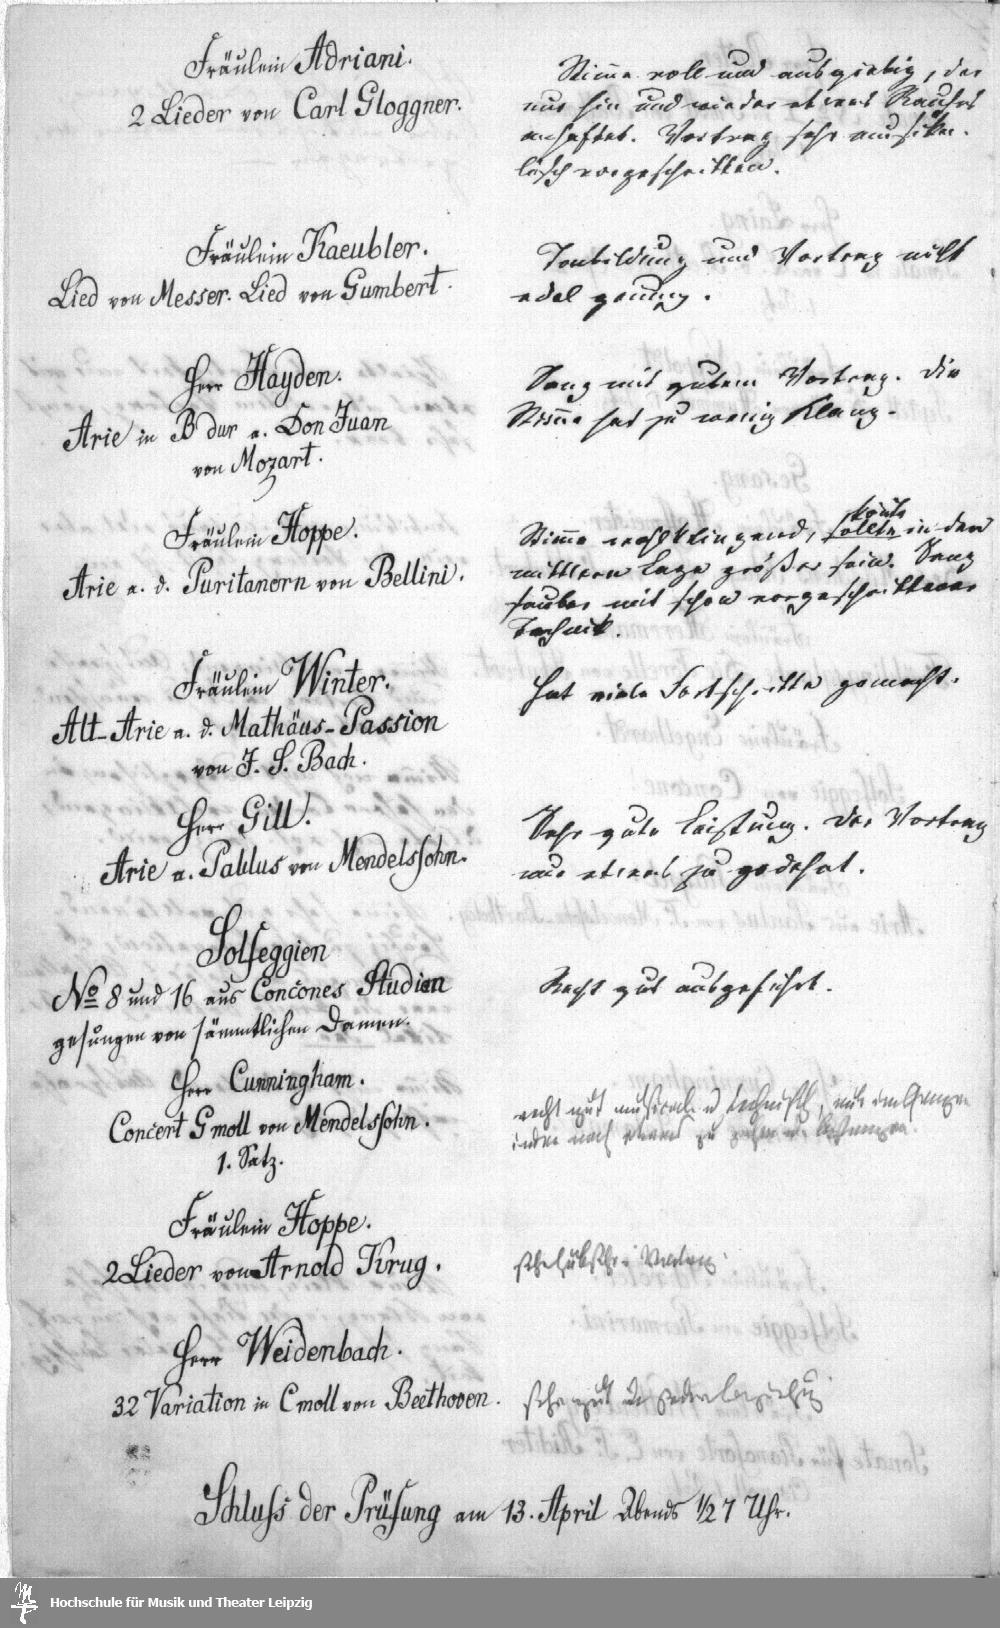 Fräulein Adriani.
2 Lieder von Carl Gloggner.
Stimme voll und ausgiebig, der
nur hin und wieder etwas Rauhes
anhaftet. Vortrag sehr musika-
lisch vorgeschritten.
Fräulein Kaeubler.
Lied von Messer. Lied von Gumbert.
Tonbildung und Vortrag nicht
edel genug.
Herr Hayden.
Arie in B dur a. Don Juan
von Mozart.
Sang mit gutem Vortrag. Die
Stimme hat zu wenig Klang.
Fräulein Hoppe.
Arie a. d. Puritanern von Bellini.
Stimme wohlklingend, sollte in der
mittlern Lage größer sein. Sang
sauber mit schon vorgeschrittener
Technik.
Fräulein Winter.
Alt-Arie a. d. Mathäus-Passion
von J. S. Bach.
Hat viele Fortschritte gemacht.
Herr Gill.
Arie a. Paulus von Mendelssohn.
Sehr gute Leistung. Der Vortrag
nur etwas zu gedehnt.
Solfeggien
No 8 und 16 aus Concones Studien
gesungen von sämmtlichen Damen.
Recht gut ausgeführt.
Herr Cunningham.
Concert G moll von Mendelssohn.
1. Satz.
recht gut musicale u technisch, nur im Ganzen
noch etwas zu
Fräulein Hoppe.
2 Lieder von Arnold Krug.
sehr hübscher Vortrag.
Herr Weidenbach.
32 Variation in C moll von Beethoven.
sehr gut in jeder Beziehung
Schluss der Prüfung am 13. April Abends 1/2 7 Uhr.
Hochschule für Musik und Theater Leipzig